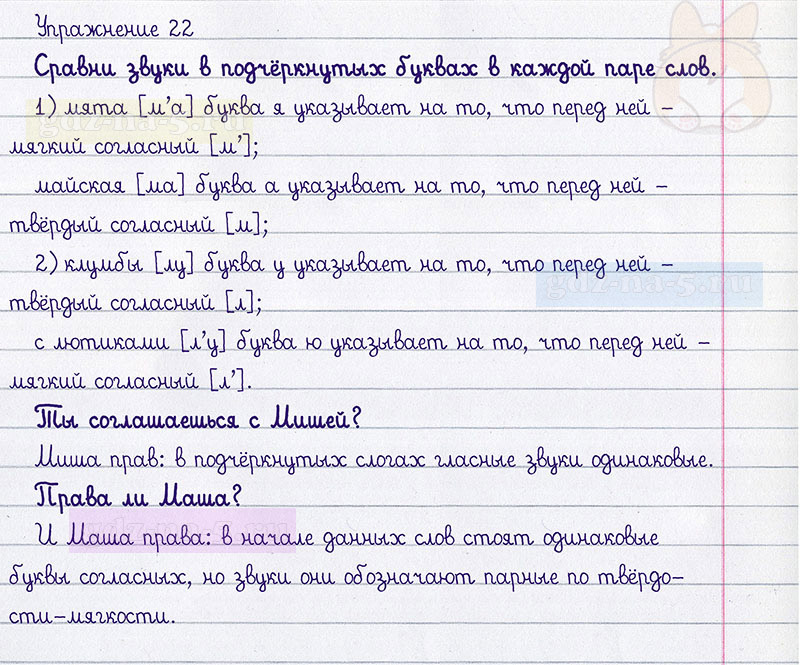 Упражнение 22
Сравни звуки в подчёркнутых буквах в каждой паре слов.
1) мята [м’а] буква я указывает на то, что перед ней –
мягкий согласный [м’];
майская [ма] буква а указывает на то, что перед ней –
твёрдый согласный [м];
2) клумбы [лу] буква у указывает на то, что перед ней –
твёрдый согласный [л];
с лютиками [л’у] буква ю указывает на то, что перед ней –
мягкий согласный [л’].
Ты соглашаешься с Мишей?
Миша прав: в подчёркнутых слогах гласные звуки одинаковые.
Права ли Маша?
И Маша права: в начале данных слов стоят одинаковые
буквы согласных, но звуки они обозначают парные по твёрдо–
сти–мягкости.
gdz-na-5.ru
gdz-na-5.ru
gdz-na-5.ru